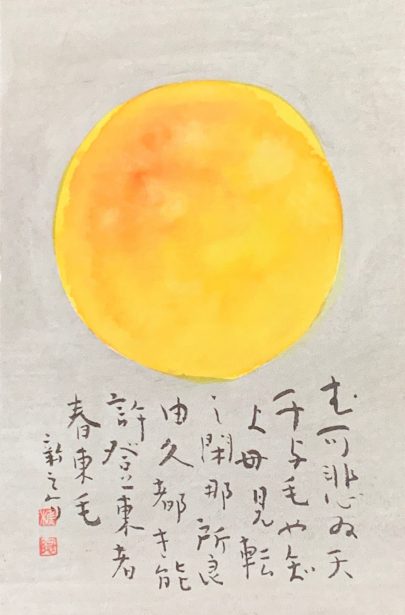 む可悲為天
千与毛や知
よ毋見転
之閑那所良
由久都き能
許登東者
春東毛